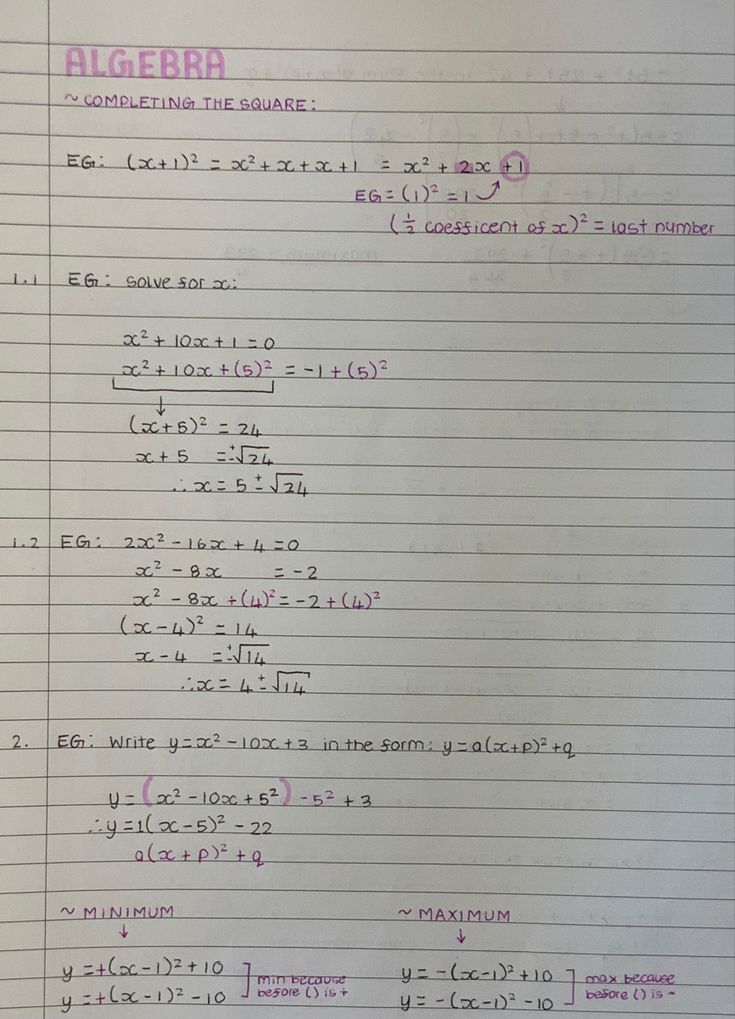 ALGEBRA
~ COMPLETING THE SQUARE:
EG: (x+1)² = x² + x + x + 1 = x² + 2x +1
EG = (1)² = 1
(½ coefficent of x)² = last number
1.1 EG: solve for x:
x² + 10x + 1 = 0
x² + 10x + (5)² = -1 + (5)²
(x+5)² = 24
x + 5 = ±√24
∴ x = 5 ± √24
1.2 EG: 2x² - 16x + 4 = 0
x² - 8x = -2
x² - 8x + (4)² = -2 + (4)²
(x - 4)² = 14
x - 4 = ±√14
∴ x = 4 ± √14
2. EG: Write y = x² - 10x + 3 in the form: y = a(x+p)² + q
y = (x² - 10x + 5²) - 5² + 3
∴ y = 1(x - 5)² - 22
a(x + p)² + q
~ MINIMUM ~ MAXIMUM
y = +(x-1)² + 10 min because y = -(x-1)² + 10 max because
y = +(x-1)² - 10 before () is + y = -(x-1)² - 10 before () is -